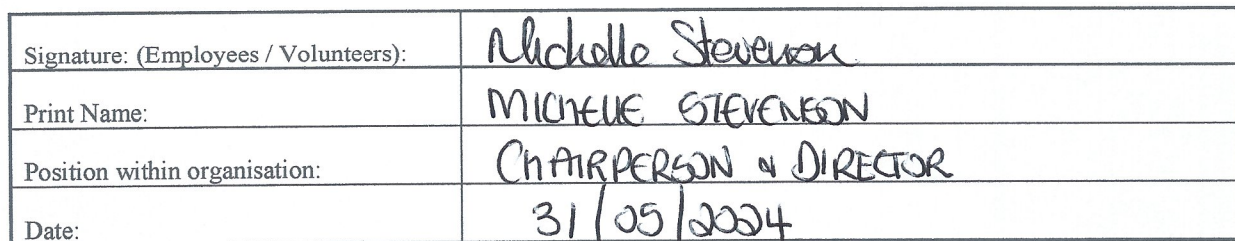 Signature: (Employees / Volunteers): Michelle Stevenson
Print Name: MICHELLE STEVENSON
Position within organisation: CHAIRPERSON & DIRECTOR
Date: 31/05/2024